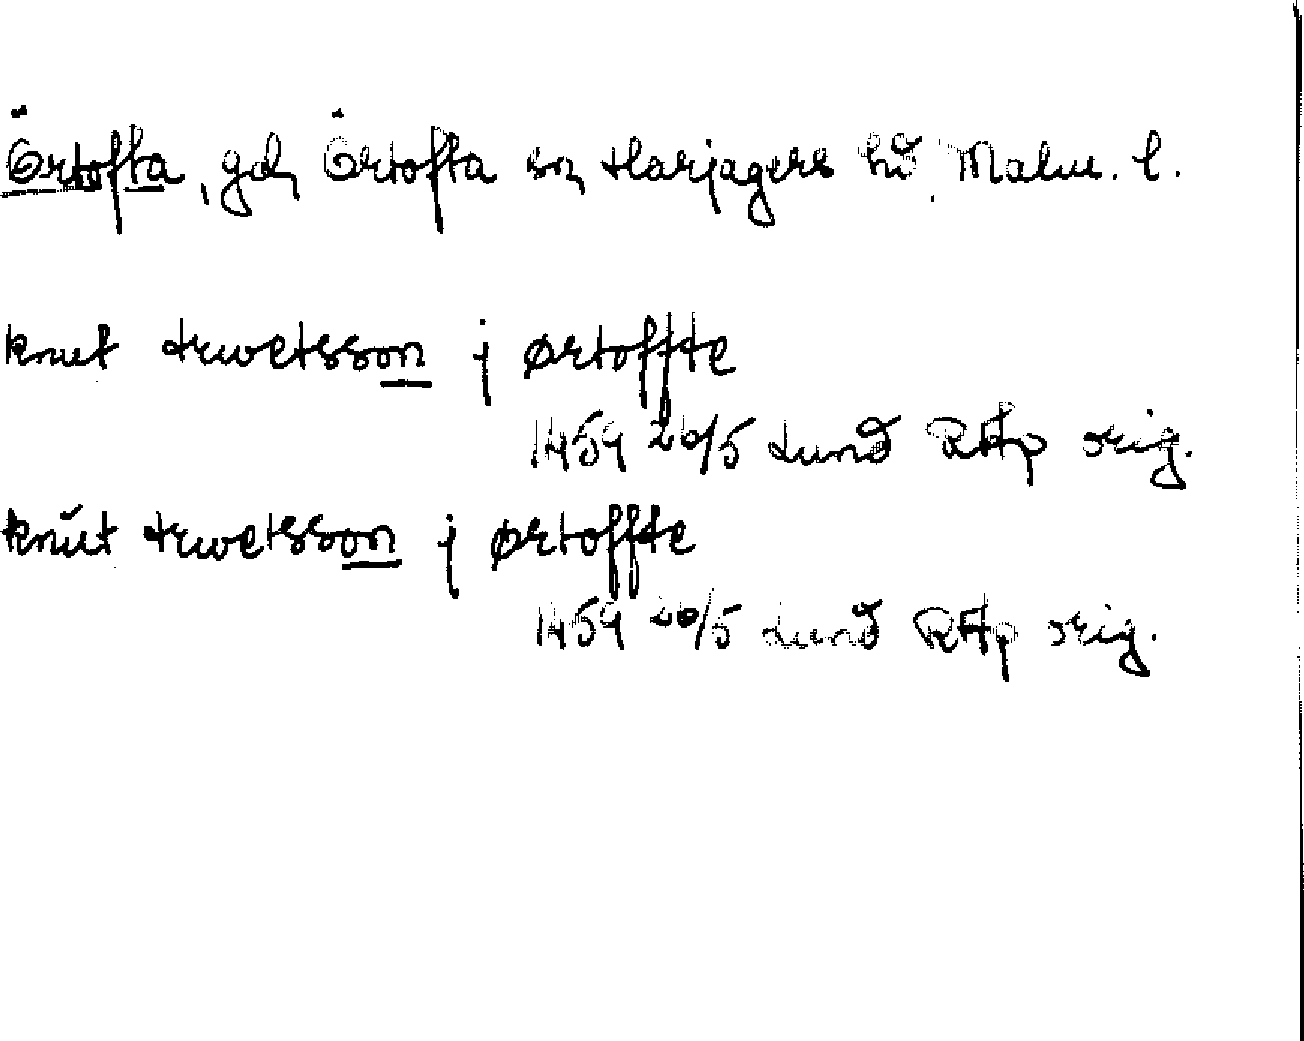 Örtofta, gd, Örtofta sn, Harjagers hd, Malm. l.
knut truwetsson j ørtoffte
1459 26/5 Lund RAp orig.
knut truwetsson j ørtoffte
1459 26/5 Lund RAp orig.